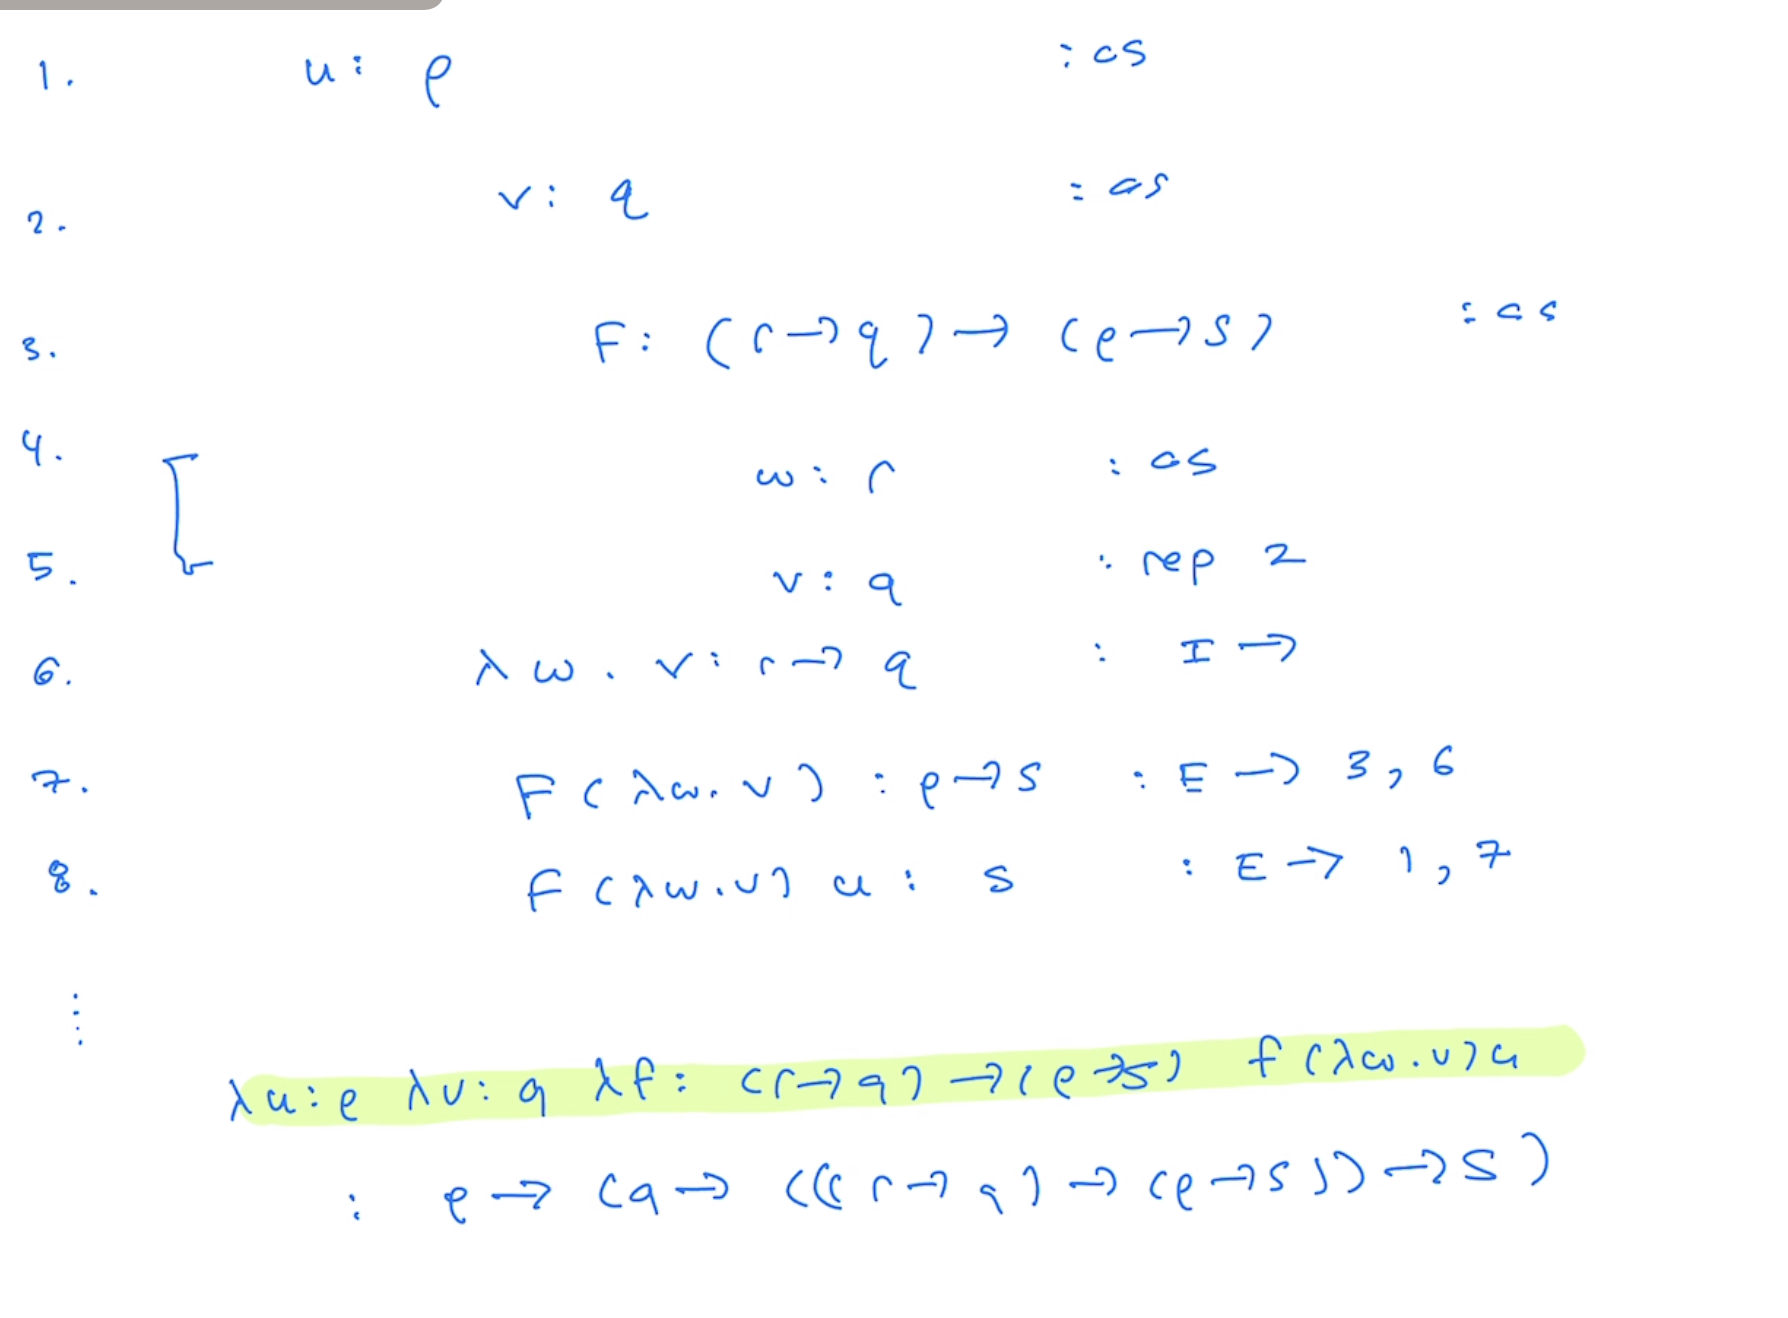 1. u: p : as
2. v: q : as
3. F: (r→q) → (p→s) : as
4. w: r : as
5. v: q : rep 2
6. λw. v: r→q : I→
7. F(λw. v) : p→s : E→ 3, 6
8. f(λw. v) u : s : E→ 1, 7
⋮
λu:p λv:q λf: (r→q)→(p→s) f(λw.v)u
: p → (q → (((r→q) → (p→s))→s)